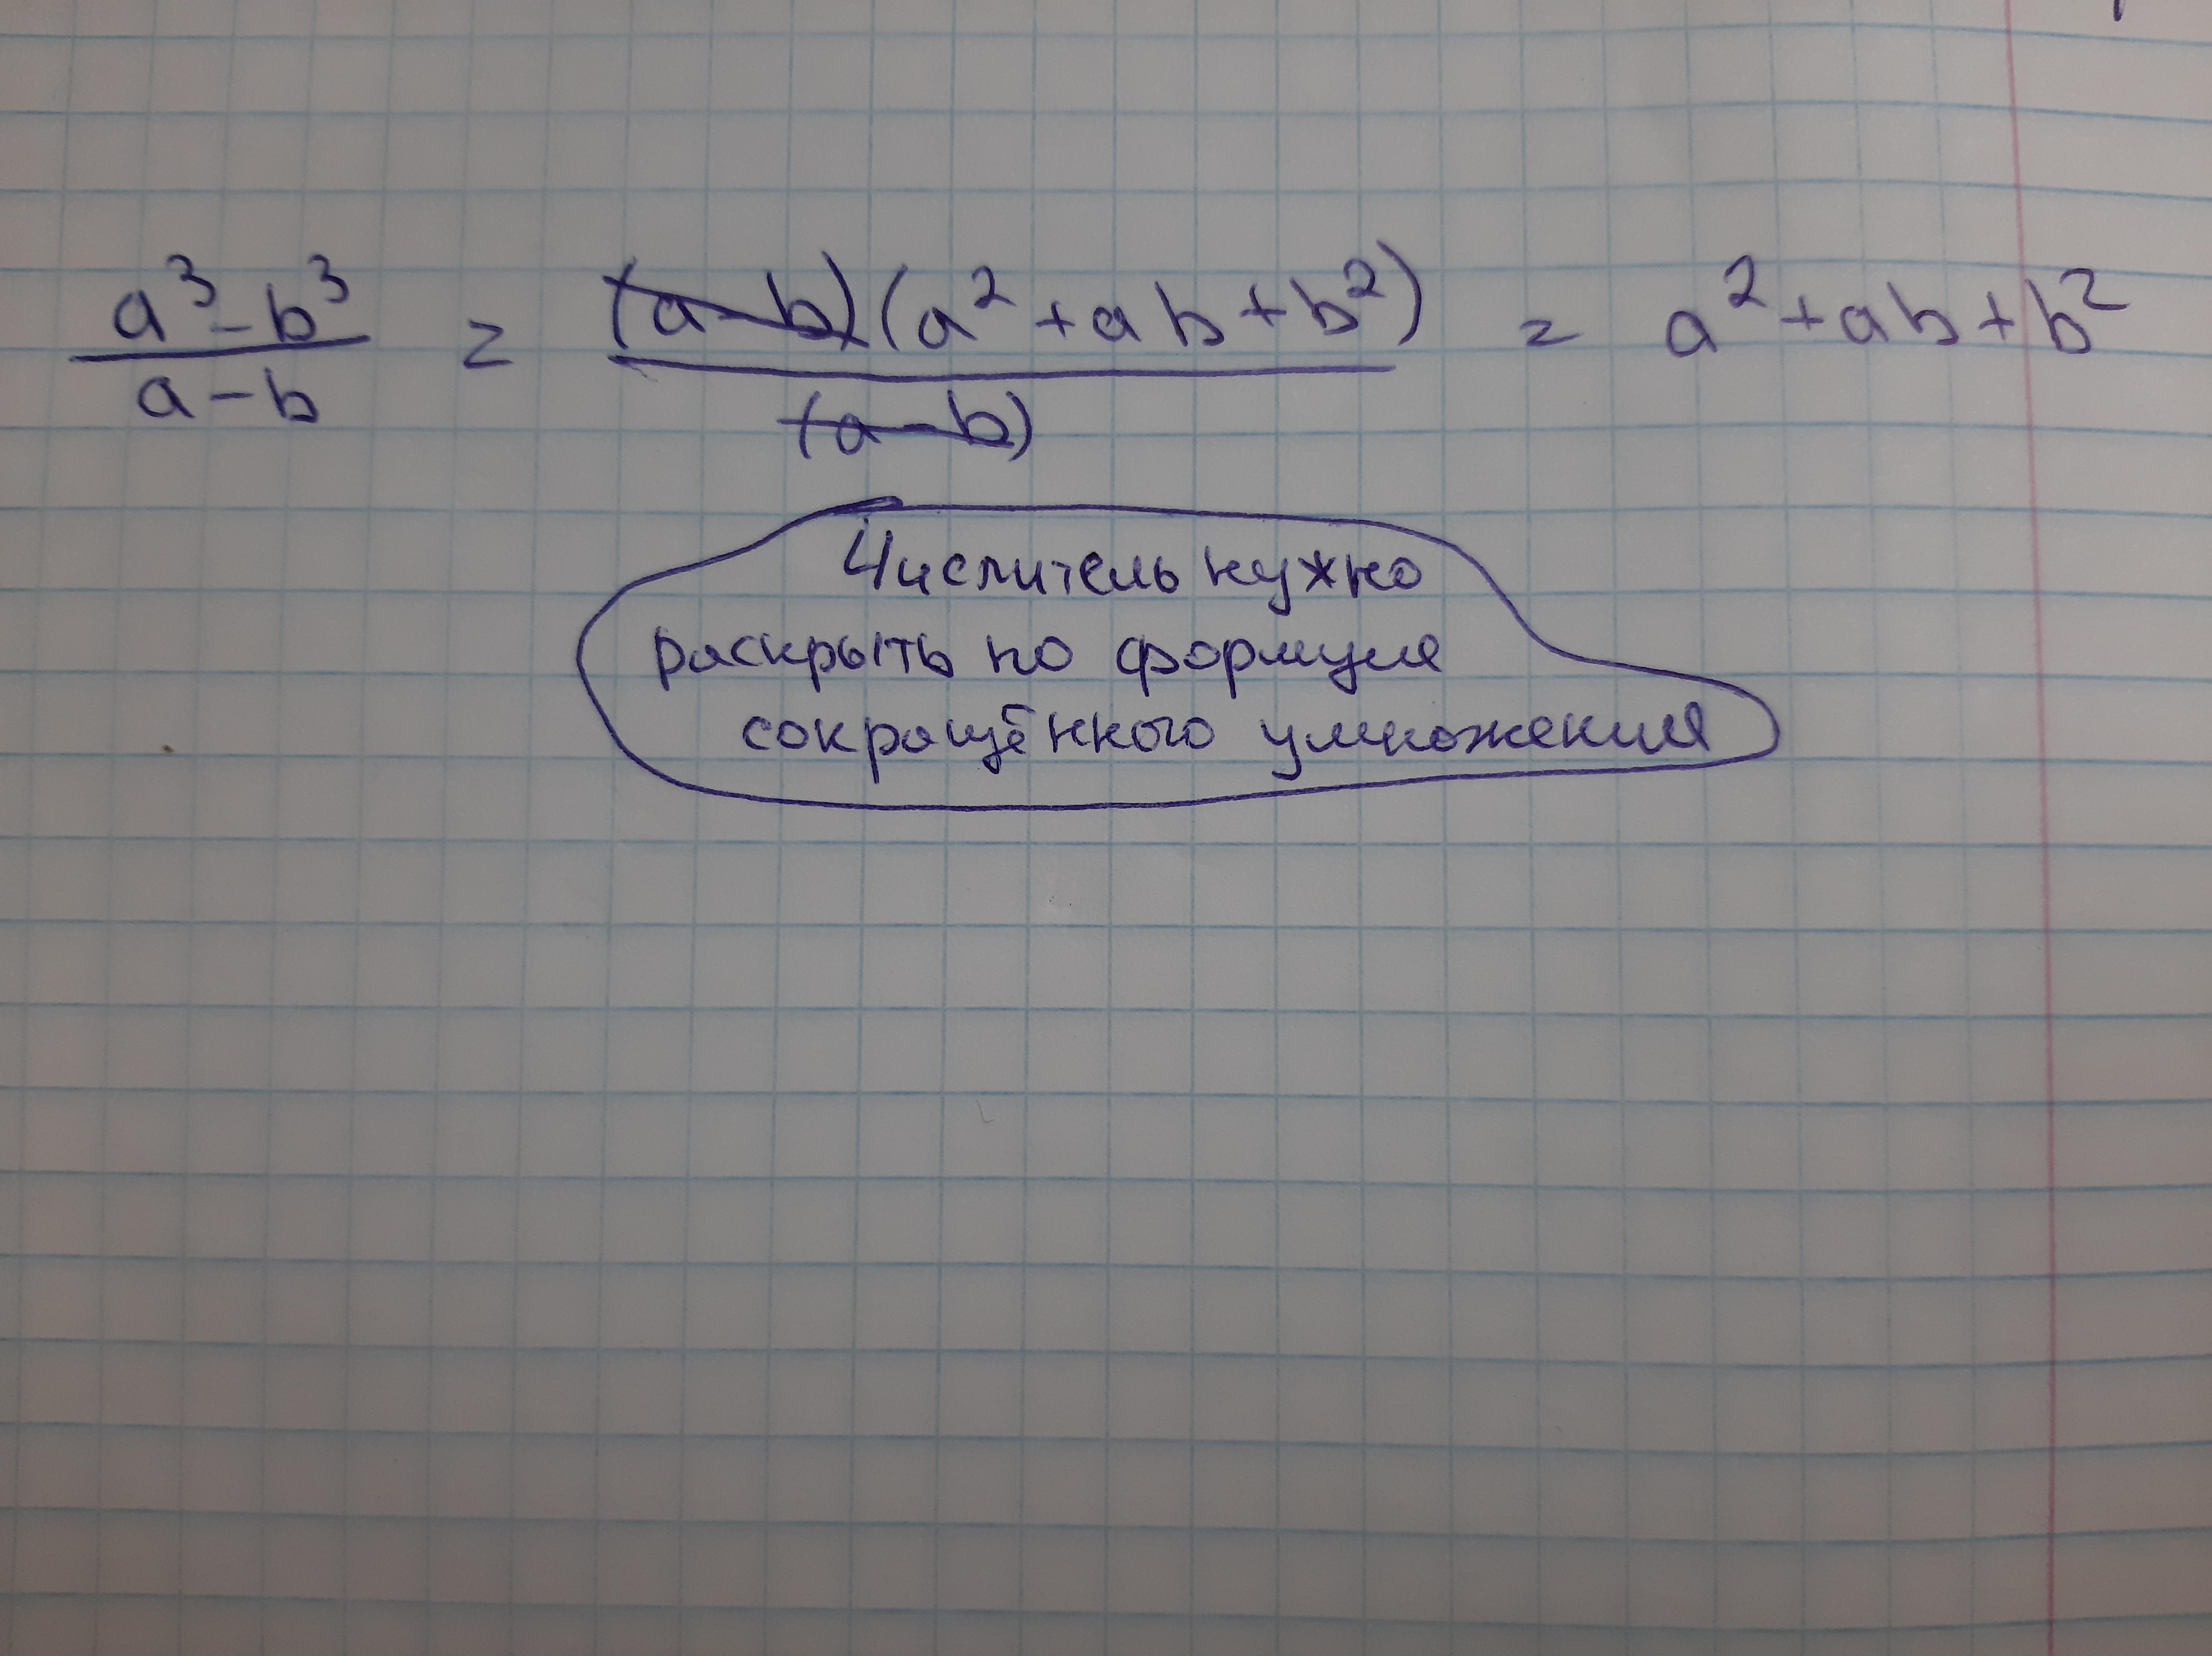 a³-b³/a-b = (a-b)(a²+ab+b²)/(a-b) = a²+ab+b²
Числитель нужно
раскрыть по формуле
сокращённого умножения